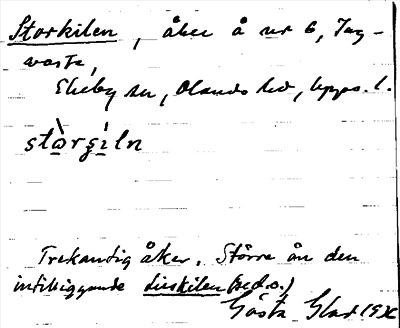 Storkilen, åker å nr 6, Tag-
vasta,
Ekeby sn, Olands hd, Upps. l.
stòrȿìln
Trekantig åker. Större än den
intilliggande lillkilen (se d.o.)
Gösta Glad